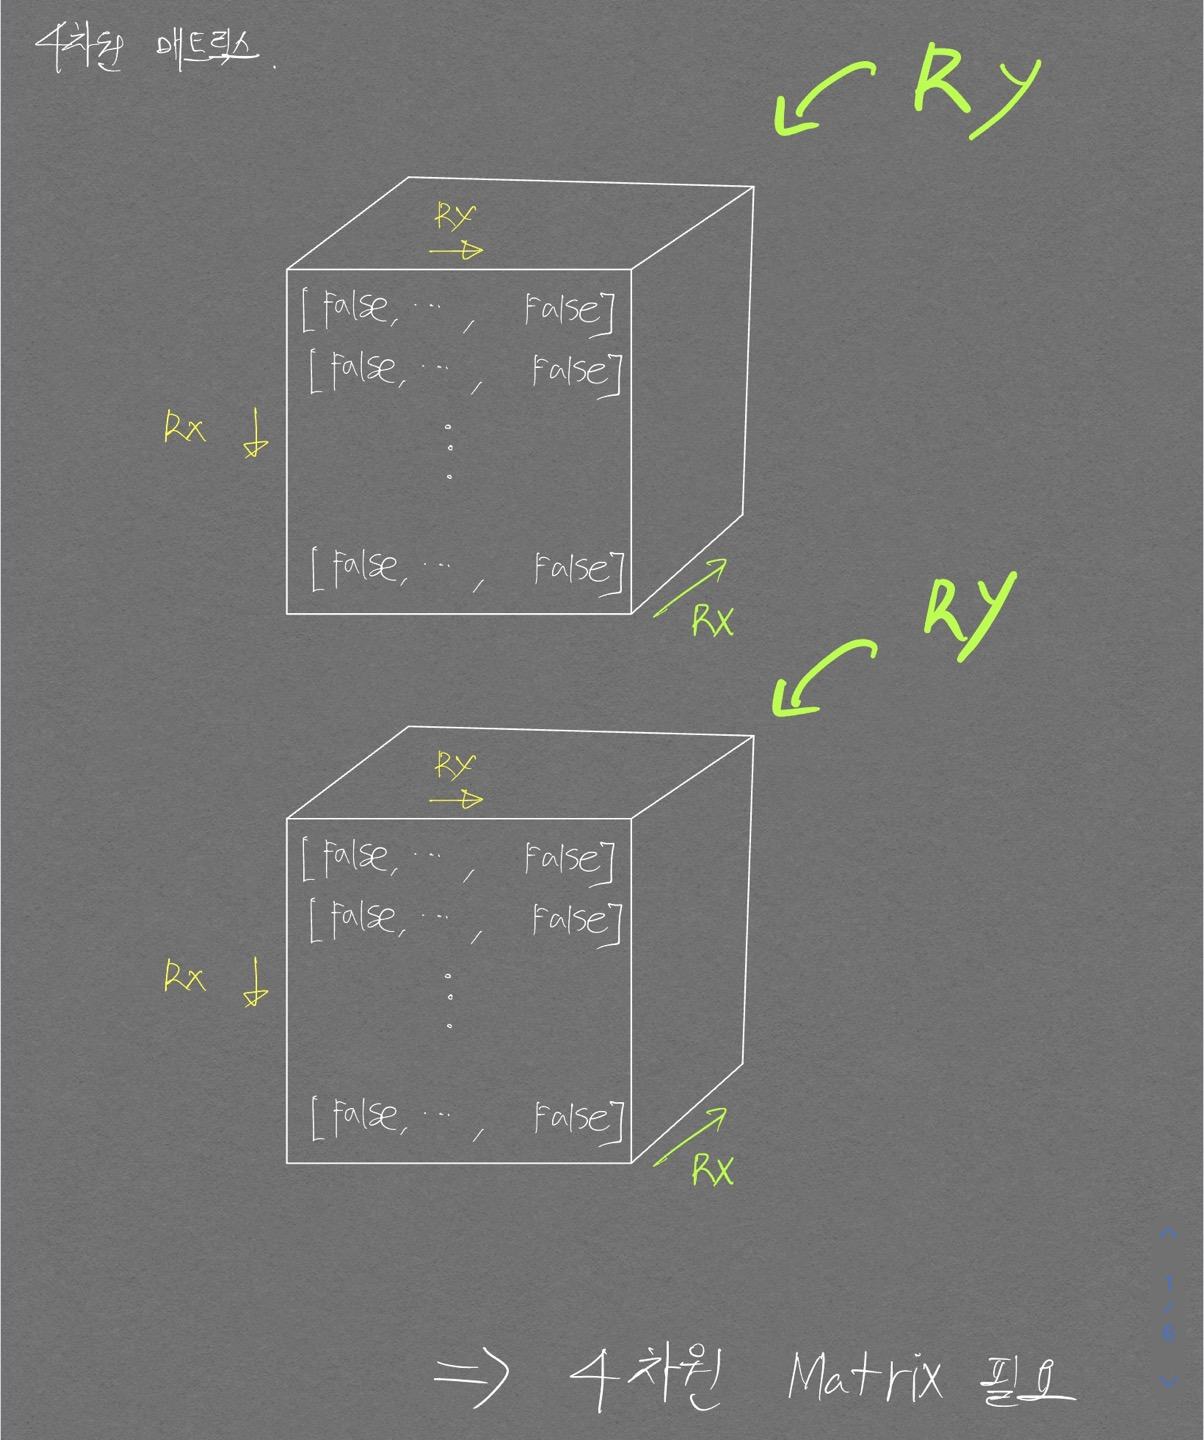 4차원 매트릭스.
Ry
RY
[False, ... , False]
[False, ... , False]
Rx
[False, ... , False]
RX
RY
RY
[False, ... , False]
[False, ... , False]
Rx
[False, ... , False]
RX
1
6
⇒ 4차원 Matrix 필요